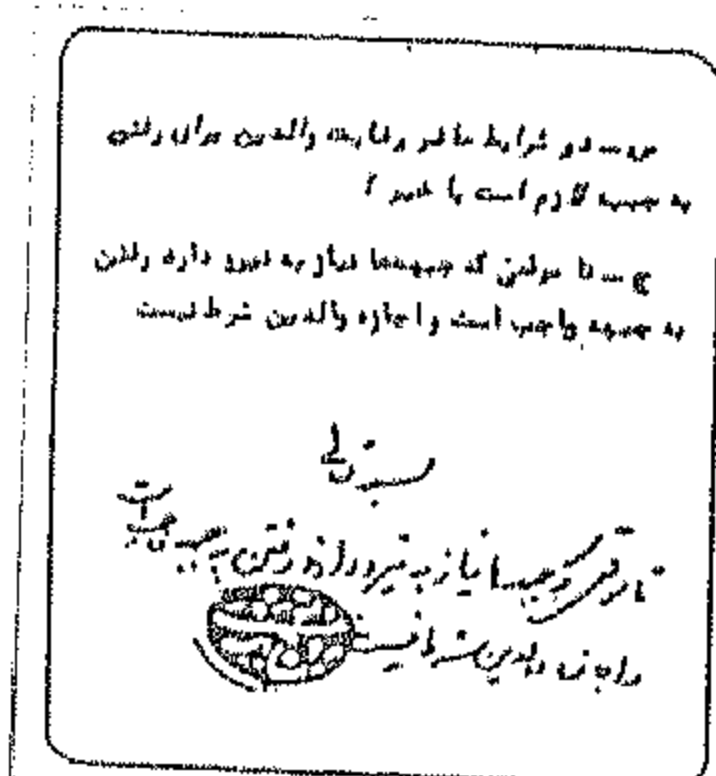 س ـ در شرایط حاضر رضایت والدین برای رفتن
به جبهه لازم است یا خیر ؟
ج ـ تا موقعی که جبهه‌ها نیاز به نیرو دارد رفتن
به جبهه واجب است و اجازه والدین شرط نیست
تا وقتی که جبهه‌ها نیاز به نیرو دارند رفتن به جبهه واجب است
و اجازه والدین شرط نیست